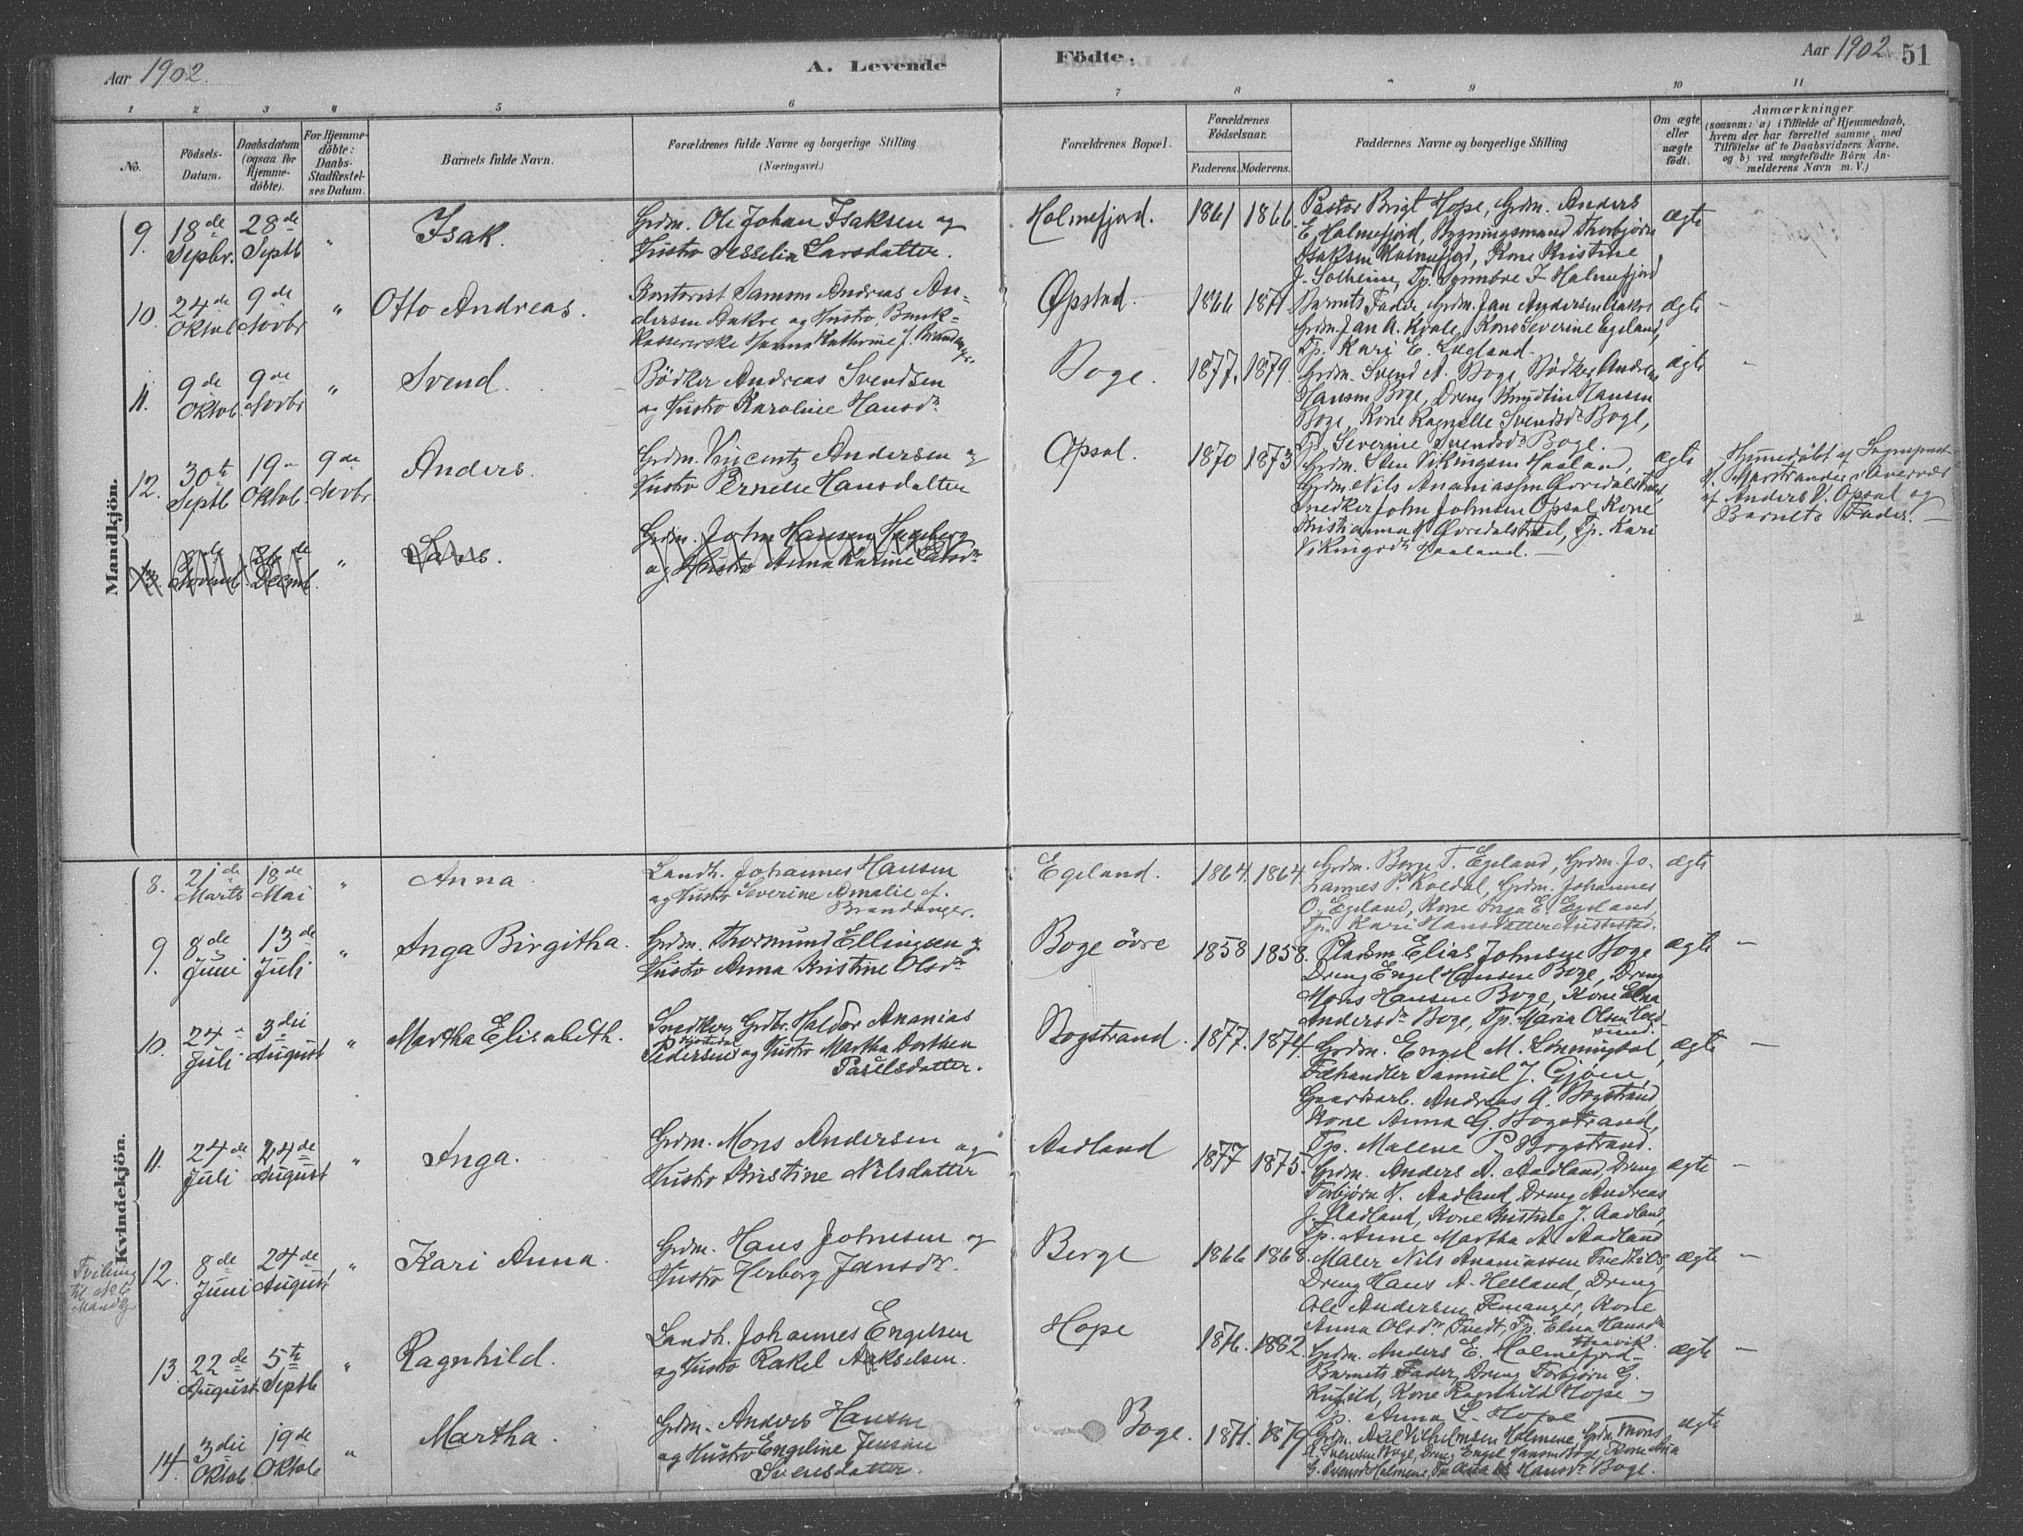 Aar 1902.
A. Levende
Födte.
Aar 1902
51
1 2 3 4 5 6 7 8 9 10 11
No.
Födsels-
Datum.
Daabsdatum
(ogsaa for
Hjemme-
döbte).
For Hjemme-
döbte:
Daabs-
Stadfæstel-
ses Datum.
Barnets fulde Navn.
Forældrenes fulde Navne og borgerlige Stilling
(Næringsvei.)
Forældrenes Bopæl.
Forældrenes
Födselsaar.
Faderens. Moderens.
Faddernes Navne og borgerlige Stilling
Om ægte
eller
uægte
födt.
Anmærkninger
(saasom: a) i Tilfælde af Hjemmedaab,
hvem der har forrettet samme, med
Tilföielse af to Daabsvidners Navne.
og b) ved uægtefödte Börn An-
melderens Navn m. V.)
Mandkjön.
9. 18de Septbr. 28de Septb " Isak.
Grdm. Ole Johan Isaksen og
Hustro Sesselia Larsdatter.
Holmefjord. 1861 1866.
Pastor Brigt Hope, Grdm. Anders
E Holmefjord, Bygningsmand Thorbjørn
Isaksen Holmefjord, Kone Kristine
J. Solheim, Tp. Synnøve I Holmefjord
ægte
10. 24de Oktob 9de Novbr " Otto Andreas.
Kontorist Samson Andreas An-
dersen Aakre og Hustro, Bank-
kassererske Hanna Kathrine J. Brandanger.
Opstad. 1866 1871.
Barnets Fader, Grdm. Jan Andersen Aakre
Grdm. Jan A. Kvale, Kone Severine Egeland,
Tp. Kari E. Lægland.
ægte –
11. 9de Oktob. 9de Novbr " Svend.
Bödker Andreas Svendsen
og Hustro Karoline Hansdr.
Boge. 1877. 1879.
Grdm. Svend A. Boge, Bødker Andreas
Hansen Boge, Dreng Knudtin Hansen
Boge, Kone Ragnelle Svendsdr Boge,
Tp. Severine Svendsdr Boge.
ægte –
12. 30te Septb 19de Oktob. 9de Novbr Anders.
Grdm. Vincentz Andersen og
Hustro Pernelle Hansdatter
Opsal. 1870 1873
Grdm. Sten Vikingsen Haaland,
Grdm Nils Ananiassen Øvredalstveit,
Snedker John Johnsen Opsal, Kone
Kristianna Øvredalstveit, Tp. Kari
Vikingsdr Haaland. –
ægte
Hjemedøbt af Sognepræst
Marstrander i Overvær
af Anders V. Opsal og
Barnets Fader. –
13. Decemb. " Lars.
Grdm. John Hansen Hageberg
og Hustro Anna Karine Larsdr
Kvindekjön.
8. 21de Marts 18de Mai " Anna.
Landh. Johannes Hansen
og Hustro Severine Amalie af.
Brandanger.
Egeland. 1864. 1864
Grdm. Børge T. Egeland, Grdm. Jo-
hannes P. Koldal, Grdm. Johannes
O. Egeland, Kone Inga E. Egeland,
Tp. Kari Hansdatter
ægte
9. 8de Juni 13de Juli " Inga Birgitha.
Grdm. Thormund Ellingsen og
Hustro Anna Kristine Olsdr
Boge övre 1858 1858.
Pladsm. Elias Johnsen Boge
Dreng Engel Hansen Boge, Dreng
Mons Hansen Boge, Kone Elna
Andersdr Boge, Tp. Maria Olsen
ægte –
10. 24de Juli 3die August " Martha Elisabeth.
Snedker, Grdbr. Haldor Ananias
Pedersen og Hustro Martha Dorthea
Paulsdatter.
Bogstrand. 1877. 1874
Grdm. Engel M. Lønningdal,
Fæhandler Samuel J. Gjøen,
Gaardkarl. Andreas A. Bogstrand,
Kone Anna G. Bogstrand,
Tp. Malene P. Bogstrand.
ægte –
11. 24de Juli 24de August " Inga.
Grdm. Mons Andersen og
Hustro Kristine Nilsdatter
Aadland 1877 1875
Grdm. Anders A. Aadland, Dreng
Torbjørn H. Aadland, Dreng Andreas
J. Aadland, Kone Kristine J. Aadland,
Tp. Anne Martha A. Aadland
ægte –
Tvilling
til No 6
Mandkj.
12. 8de Juni 24de August " Kari Anna.
Grdm. Hans Johnsen og
Hustro Herborg Jansdr.
Berge 1866 1868.
Maler Nils Ananiassen Tvedt,
Dreng Hans A. Helland, Dreng
Ole Andersen Femanger, Kone
Anna Olsdr Tvedt, Tp. Elna Hansdr
Haavik.
ægte –
13. 22de August 5te Septb " Ragnhild.
Landh. Johannes Engelsen
og Hustro Rakel Akselsen.
Hope 1876. 1882.
Grdm. Anders E. Holmefjord
Barnets Fader, Dreng Torbjørn G.
Kone Ragnhild Hope,
Tp. Anna L. Hope
ægte –
14. 3die Oktob 19de Oktob " Martha.
Grdm. Anders Hansen
og Hustro Engeline Jensine
Svensdatter.
Boge. 1871. 1879
Grdm. Axel Vilhelmsen Holmene, Grdm. Mons
Svendsen Boge, Dreng Engel Hansen Boge, Kone Ana
G. Svensdr Holmene, Tp. Hansdr Boge.
ægte